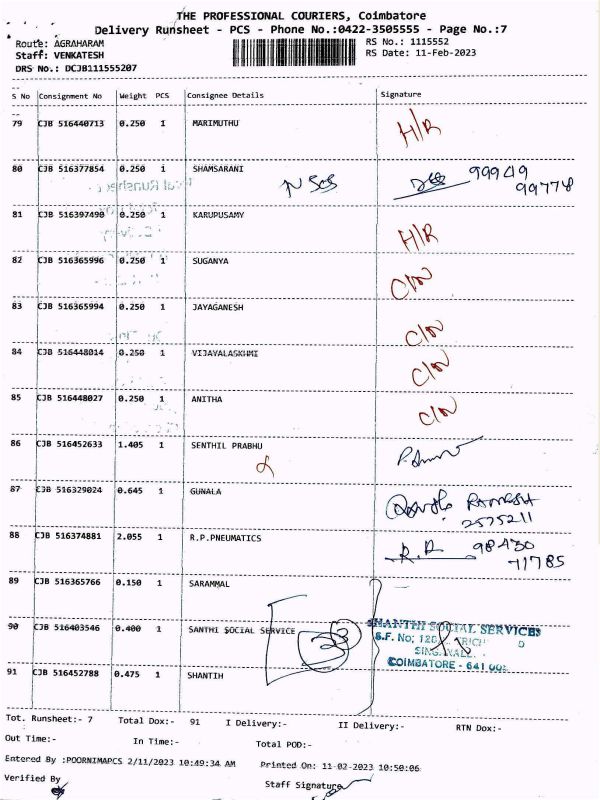 THE PROFESSIONAL COURIERS, Coimbatore
Delivery Runsheet - PCS - Phone No.:0422-3505555 - Page No.:7
Route: AGRAHARAM RS No.: 1115552
Staff: VENKATESH RS Date: 11-Feb-2023
DRS No.: DCJB111555207
S No Consignment No Weight PCS Consignee Details Signature
79 CJB 516440713 0.250 1 MARIMUTHU H/R
80 CJB 516377854 0.250 1 SHAMSARANI 99949
99778
81 CJB 516397490 0.250 1 KARUPUSAMY H/R
82 CJB 516365996 0.250 1 SUGANYA C/N
83 CJB 516365994 0.250 1 JAYAGANESH C/N
84 CJB 516448014 0.250 1 VIJAYALASKHMI C/N
85 CJB 516448027 0.250 1 ANITHA C/N
86 CJB 516452633 1.405 1 SENTHIL PRABHU
87 CJB 516329024 0.645 1 GUNALA RAMESH
2575211
88 CJB 516374881 2.055 1 R.P.PNEUMATICS R.R 98430
71785
89 CJB 516365766 0.150 1 SARAMMAL
90 CJB 516403546 0.400 1 SANTHI SOCIAL SERVICE 3 SHANTHI SOCIAL SERVICES
S.F. No; COIMBATORE - 641
91 CJB 516452788 0.475 1 SHANTIH
Tot. Runsheet:- 7 Total Dox:- 91 I Delivery:- II Delivery:- RTN Dox:-
Out Time:- In Time:- Total POD:-
Entered By :POORNIMAPCS 2/11/2023 10:49:34 AM Printed On: 11-02-2023 10:50:06
Verified By Staff Signature